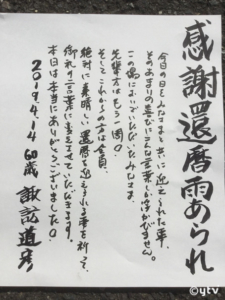 感謝還暦雨あられ
今日の日をみなさまと共に迎えられた事、
そのあまりの喜びにこんな言葉しかうかびません。
この場においでいただいたみなさま
先輩方はもう一周!
そしてこれからの方は全員、
絶対に素晴しい還暦を迎えられる事を祈って、
御礼の言葉に変えさせていただきます。
本日は本当にありがとうございました!
2019.4.14 60歳 諏訪道彦
©ytv